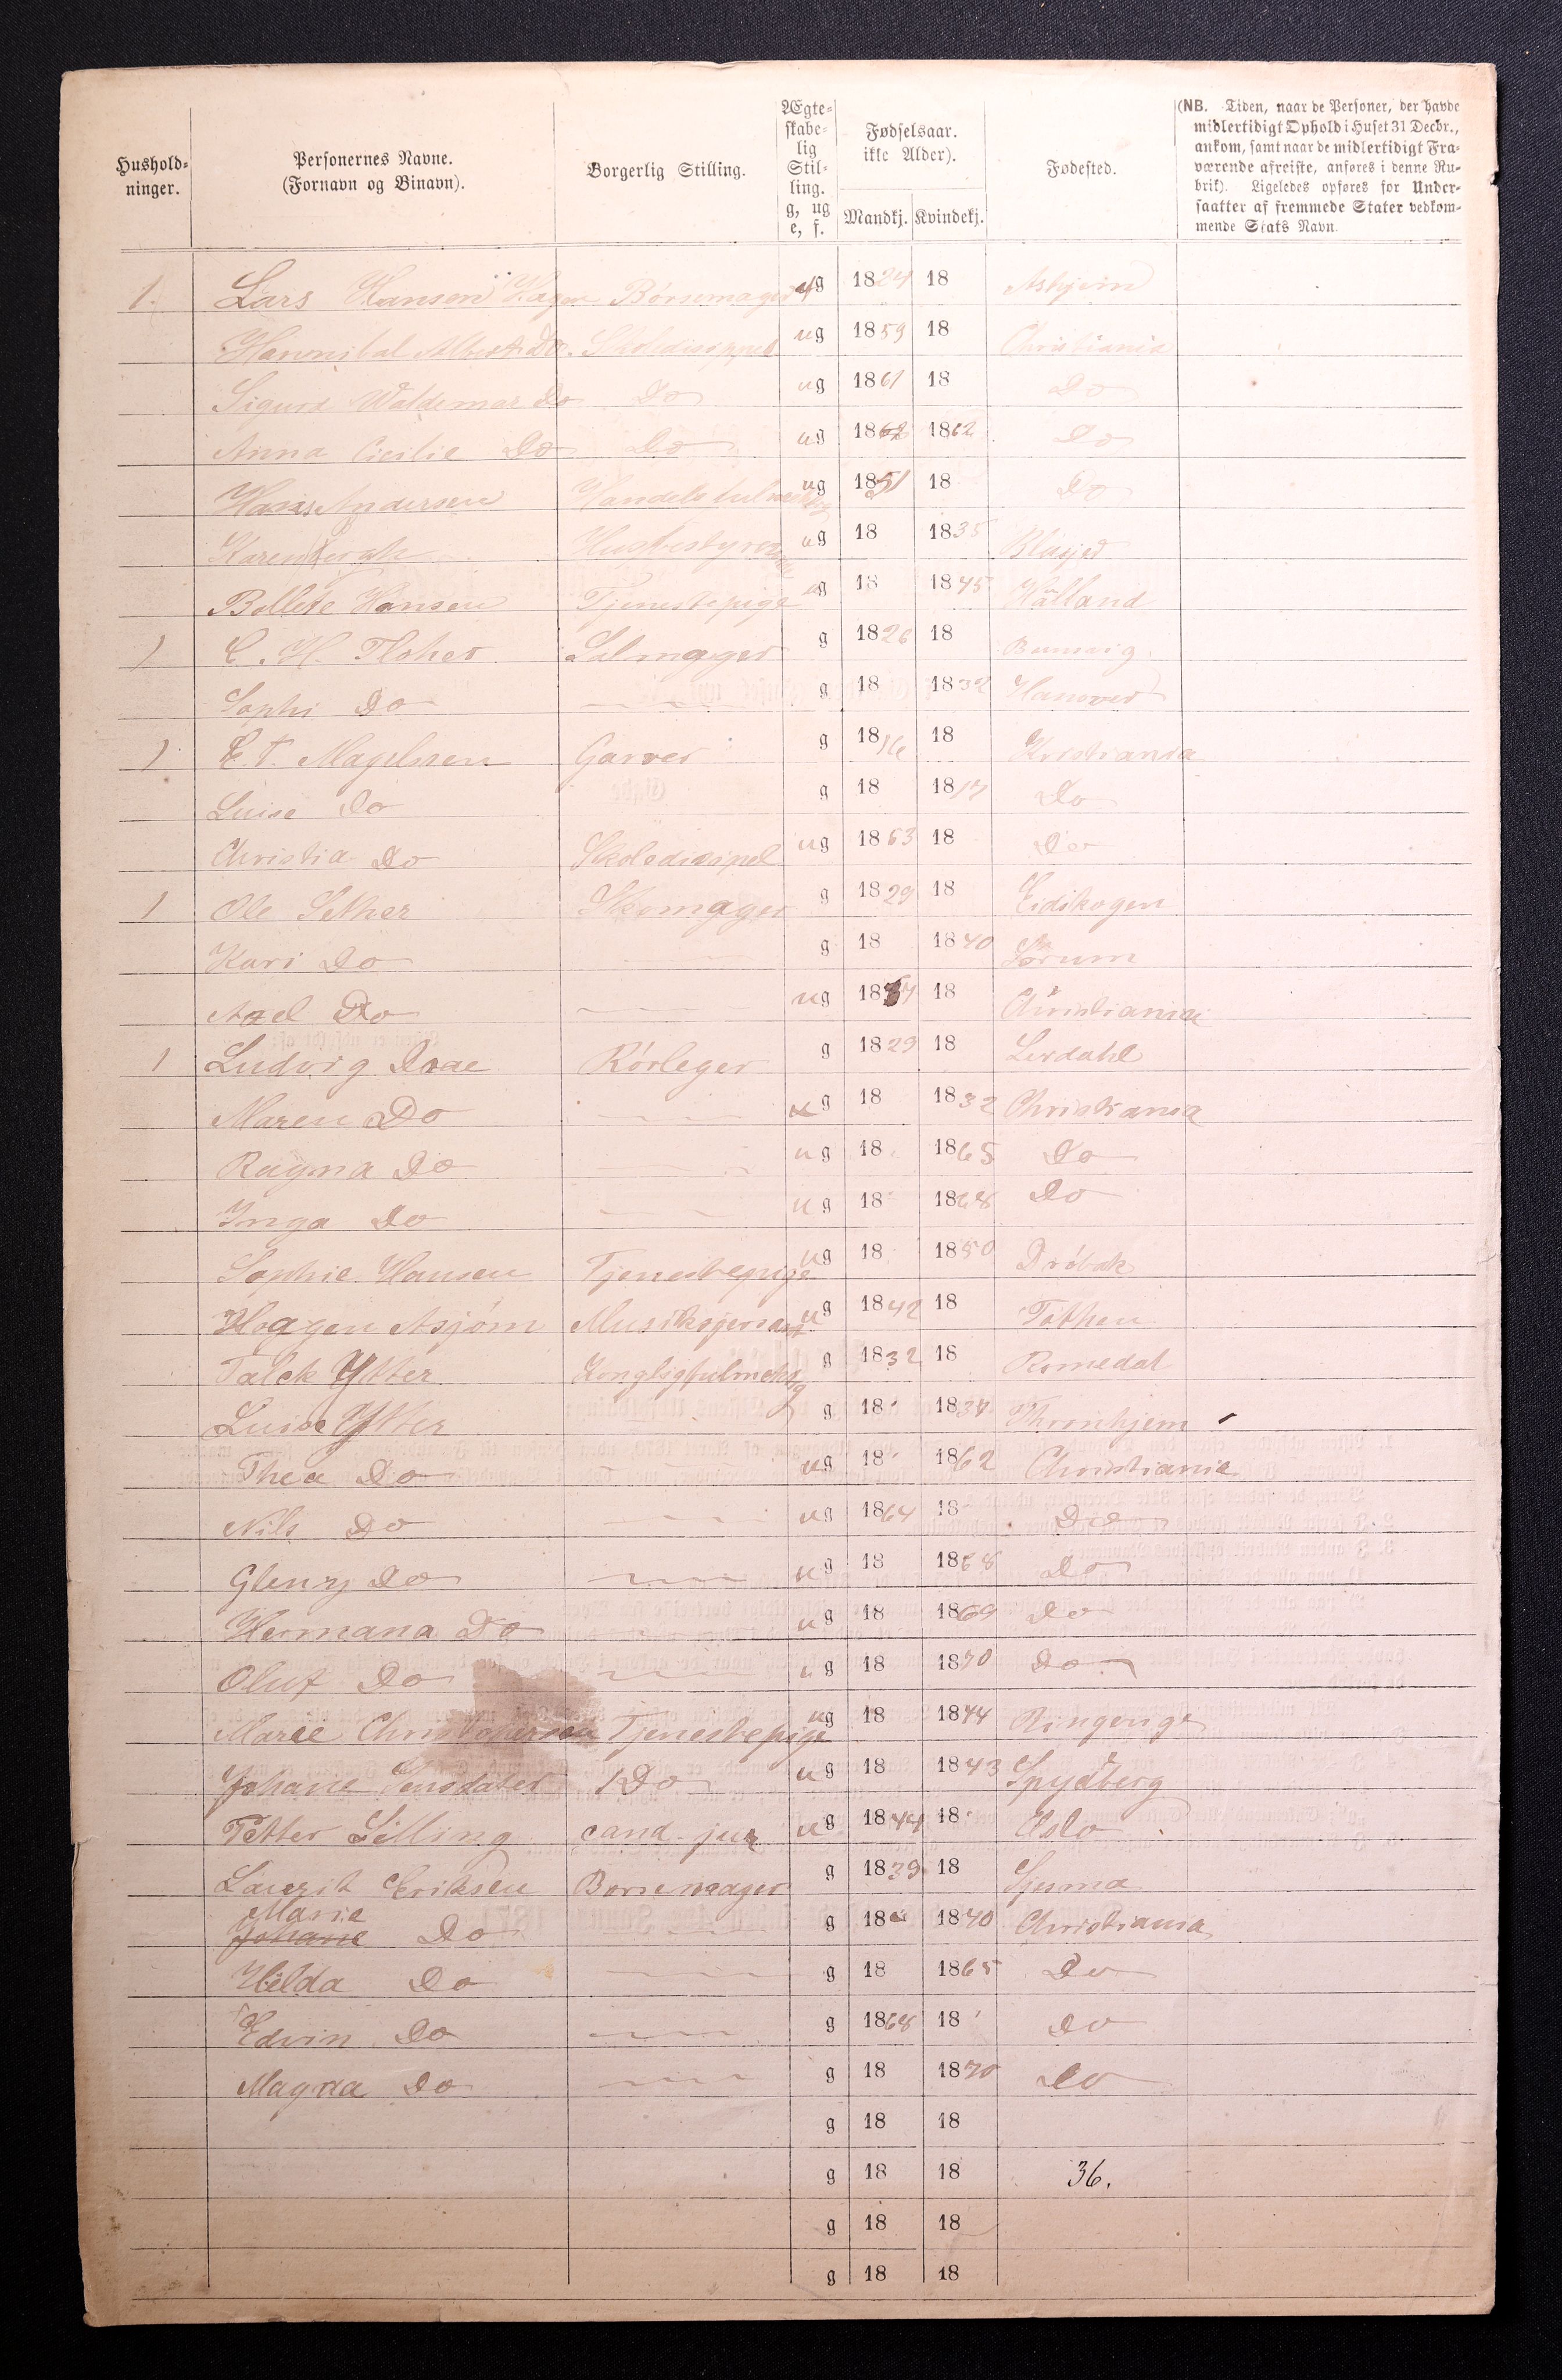 Hushold-
ninger.
Personernes Navne.
(Fornavn og Binavn).
Borgerlig Stilling.
Ægte-
skabe-
lig
Stil-
ling.
g, ug
e, f.
Fødselsaar.
ikke Alder).
Mandkj. Kvindekj.
Fødested.
(NB. Tiden, naar de Personer, der havde
midlertidigt Ophold i Huset 31 Decbr.,
ankom, samt naar de midlertidigt Fra-
værende afreiste, anføres i denne Ru-
brik). Ligeledes opføres for Under-
saatter af fremmede Stater vedkom-
mende Stats Navn.
1. Lars Hansen Hagen Börsemager g 1824 18 Asbjern
Hannibal Albert Do. Skoledisippel ug 1859 18 Christiania
Sigurd Waldemar Do Do ug 1861 18 Do
Anna Cicilie Do Do ug 1862 1862 Do
Hans Andersen ug 1851 18 Do
Karen Husbestyrer ug 18 1835
Bollete Hansen Tjenestepige ug 18 1845 Hålland
1 C. H. Salmager g 1826 18
Sophi Do g 18 1832 Hanover
1 C. T. Magelssen Garver g 1816 18 Kristiania
Luise Do g 18 1817 Do
Christia Do Skoledisipel ug 1863 18 Do
1 Ole Sether Skomager g 1829 18 Eidskogen
Kari Do g 18 1840 Sörum
Axel Do ug 18 18 Christiania
1 Ludvig Drae Rörleger g 1829 18 Lerdahl
Maren Do g 18 1832 Christiania
Ragna Do ug 18 1865 Do
Inga Do ug 18 1868 Do
Sophie Hansen Tjenestepige ug 18 1850 Dröbak
Haagen Asjörn ug 1842 18 Tothen
Falck Ytter g 1832 18 Romedal
Luise Ytter g 18 1834 Thronhjem
Thea Do ug 18 1862 Christiania
Nils Do ug 1864 18 Do
Glenny Do ug 18 1868 Do
Hermana Do ug 18 1869 Do
Oluf Do ug 18 1870 Do
Maree Christophersen Tjenestepige ug 18 1844 Ringerige
Johane Jensdater Do ug 18 1843 Spydberg
Petter Lilling cand. jur ug 1844 18 Oslo
Lauerit Eriksen Borsemager g 1839 18
Marie
Johane Do g 18 1840 Christiania
Hilda Do g 18 1865 Do
Edvin Do g 1868 18 Do
Magda Do g 18 1870 Do
g 18 18
g 18 18 36.
g 18 18
g 18 18